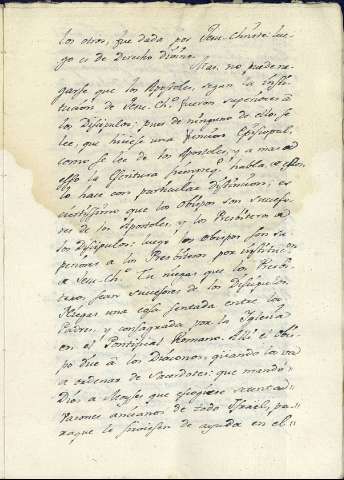 los otros, fue dada por Jesu-Christo: lue-
go es de derecho divino.
Mas, no puede ne-
garse que los Apostoles, segun la insti-
tucion de Jesu-Ch.º fueron superiores à
los Discipulos: pues de ninguno de ellos, se
lee, que hiciese una funcion Episcopal,
como se lee de los Apostoles, y a mas de
esto la Escritura siempre q.e habla de ellos
lo hace con particular distincion; es
ciertissimo que los Obispos son suceso-
res de los Apostoles, y los Presbiteros de
los discipulos: luego los Obispos son su-
periores à los Presbiteros por institucion
de Jesu-Ch.º Tu niegas que los Presbi-
teros, sean sucesores de los Discipulos
Niegas una cosa sentada entre los
Padres, y consagrada por la Iglesia
en el Pontifical Romano. Alli el Obis-
po dice à los Diaconos, quando los va
a ordenar de Sacerdotes: que mandó
Dios à Moyses que escogiese setenta
Varones ancianos de todo Israel, pa-
raque le sirviesen de ayuda en el